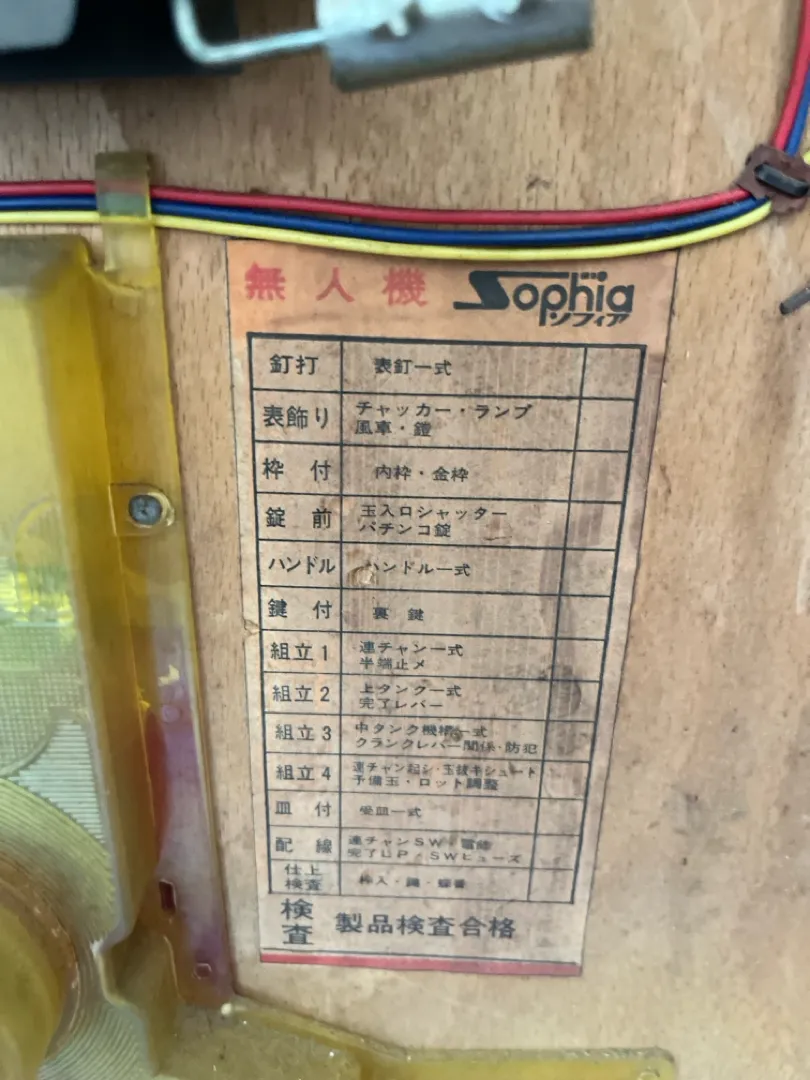 無人機 Sophia
ソフィア
釘打 表釘一式
表飾り チャッカー・ランプ
風車・鎧
枠付 内枠・金枠
錠前 玉入口シャッター
パチンコ錠
ハンドル ハンドル一式
鍵付 裏鍵
組立1 連チャン一式
半端止メ
組立2 上タンク一式
完了レバー
組立3 中タンク機構一式
クランクレバー関係・防犯
組立4 連チャン起シ・玉抜キシュート
予備玉・ロット調整
皿付 受皿一式
配線 連チャンSW・電飾
完了LP・SWヒューズ
仕上
検査 枠入・鏡・蝶番
検査 製品検査合格